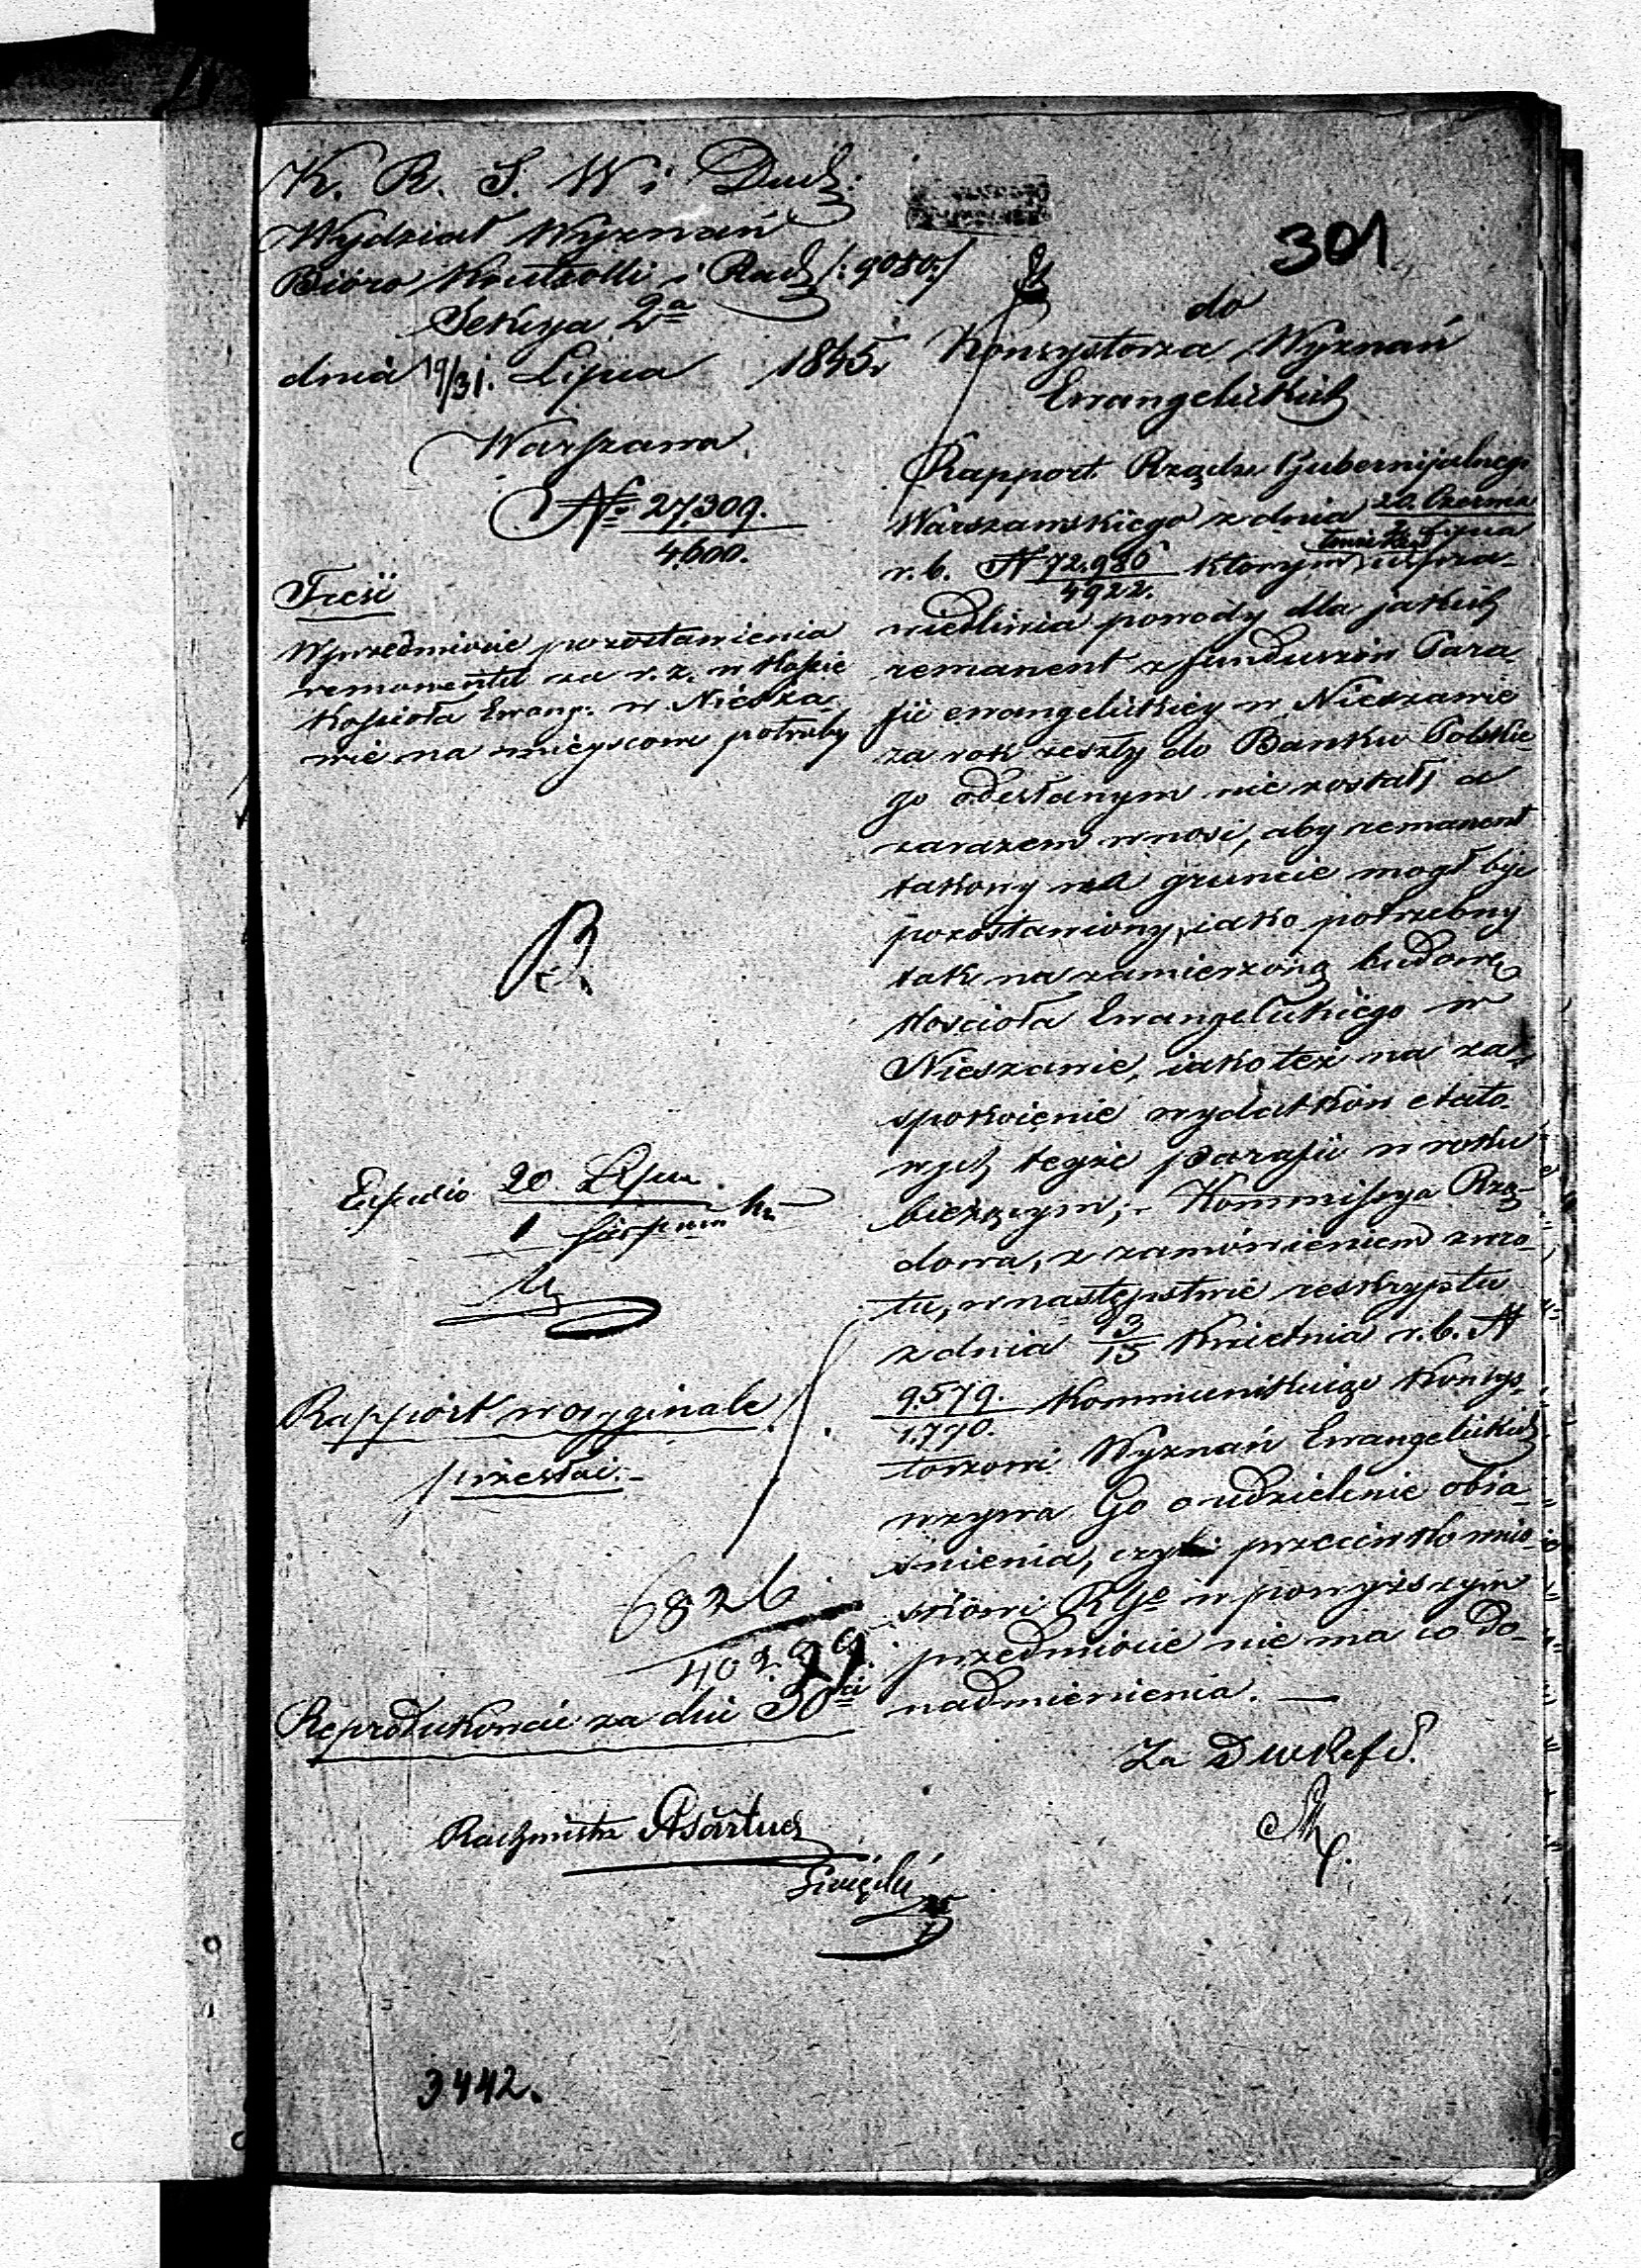 K. R. S. W i Duch:
Wydział Wyznań
Bióro Kontrolli i Rach /:9080:/
Sekcya 2a
dnia 19/31. Lipca 1845r
Warszawa.
No 27,309.
4600.
Treść
W przedmiocie pozostawienia
remanentu za r. z. w Kassie
Kościoła Ewang: w Niesza-
wie na mieyscowe potrzeby
R
Expedio 20 Lipca
1 Sierpnia
Rapport w oryginale
przesłać.-
6826
Reprodukować za dni 30ci
Rachmistrz
3442.
301
do
Konsystorza Wyznań
Ewangelickich
Rapport Rządu Gubernijalnego
Warszawskiego z dnia 20. Czerwca
2 Lipca
r. b. N 72.986 którym uspra-
4922.
wiedliwia powody dla jakich
remanent z funduszów Para-
fii ewangelickiey w Nieszawie
za rok zeszły do Banku Polskie-
go odesłanym nie został, a
zarazem wnosi, aby remanent
takowy na gruncie mogł być
pozostawiony, iako potrzebny
tak na zamierzoną budowę
Kościoła Ewangelickiego w
Nieszawie, iako też na za-
spokoienie wydatków etato-
wych tegże parafii w roku
bieżącym;- Kommissya Rzą-
dowa, z zamówieniem zwro-
tu, w następstwie reskryptu
z dnia 3/15 Kwietnia r. b. N
9.579. Kommunikuiąc Konsys-
1.770.
torzowi Wyznań Ewangelickich
wzywa Go o udzielenie obia-
śnienia, czyli przeciwko wnio-
skowi RGo w powyższym
przedmiocie nie ma co do
nadmienienia. —
Za